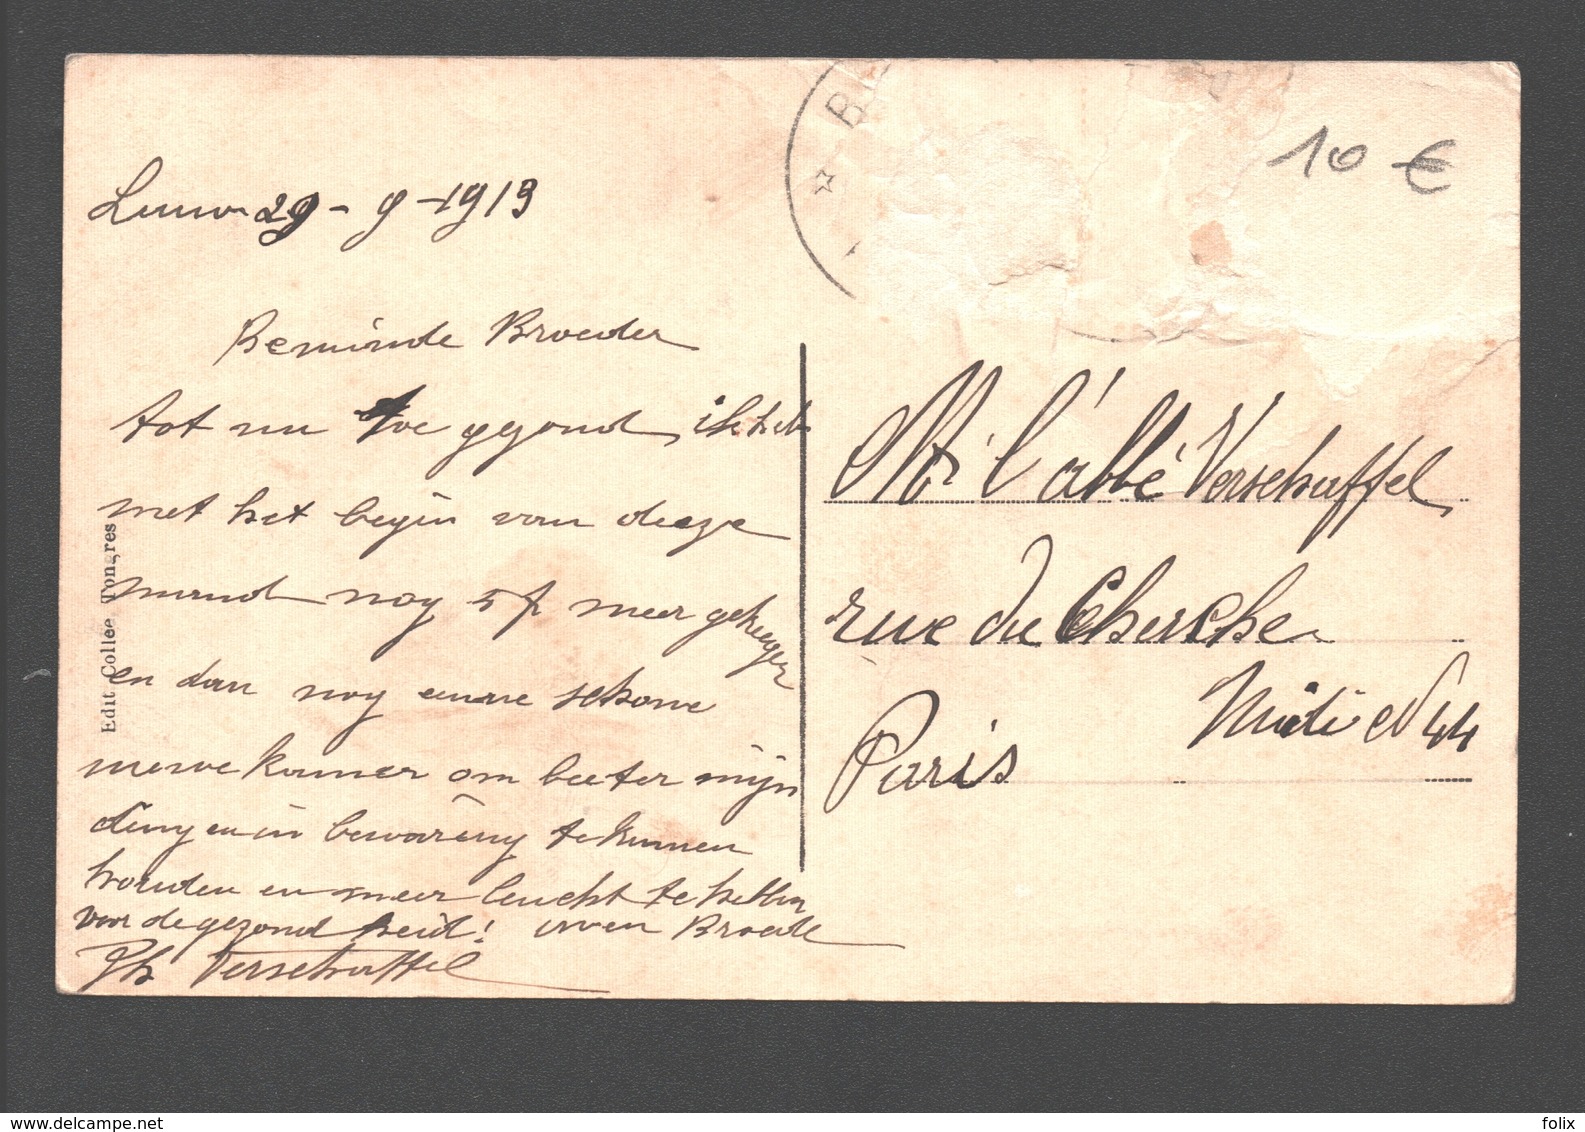 29-9-1913
Beminde Broeder
tot nu toe gezond, ik heb
met het begin van deeze
maand nog 5 fr meer gekregen
en dan nog eene schone
niewe kamer om beeter mijn
dingen in bewaring te kunnen
houden en meer lucht te hebben
voor de gezondheid! uwen Broeder
Ph Verschaffel
Edit Collée Tongres
B
10 €
Mr l'abbé Verschaffel
rue du Cherche
Midi No 44
Paris
www.delcampe.net
folix